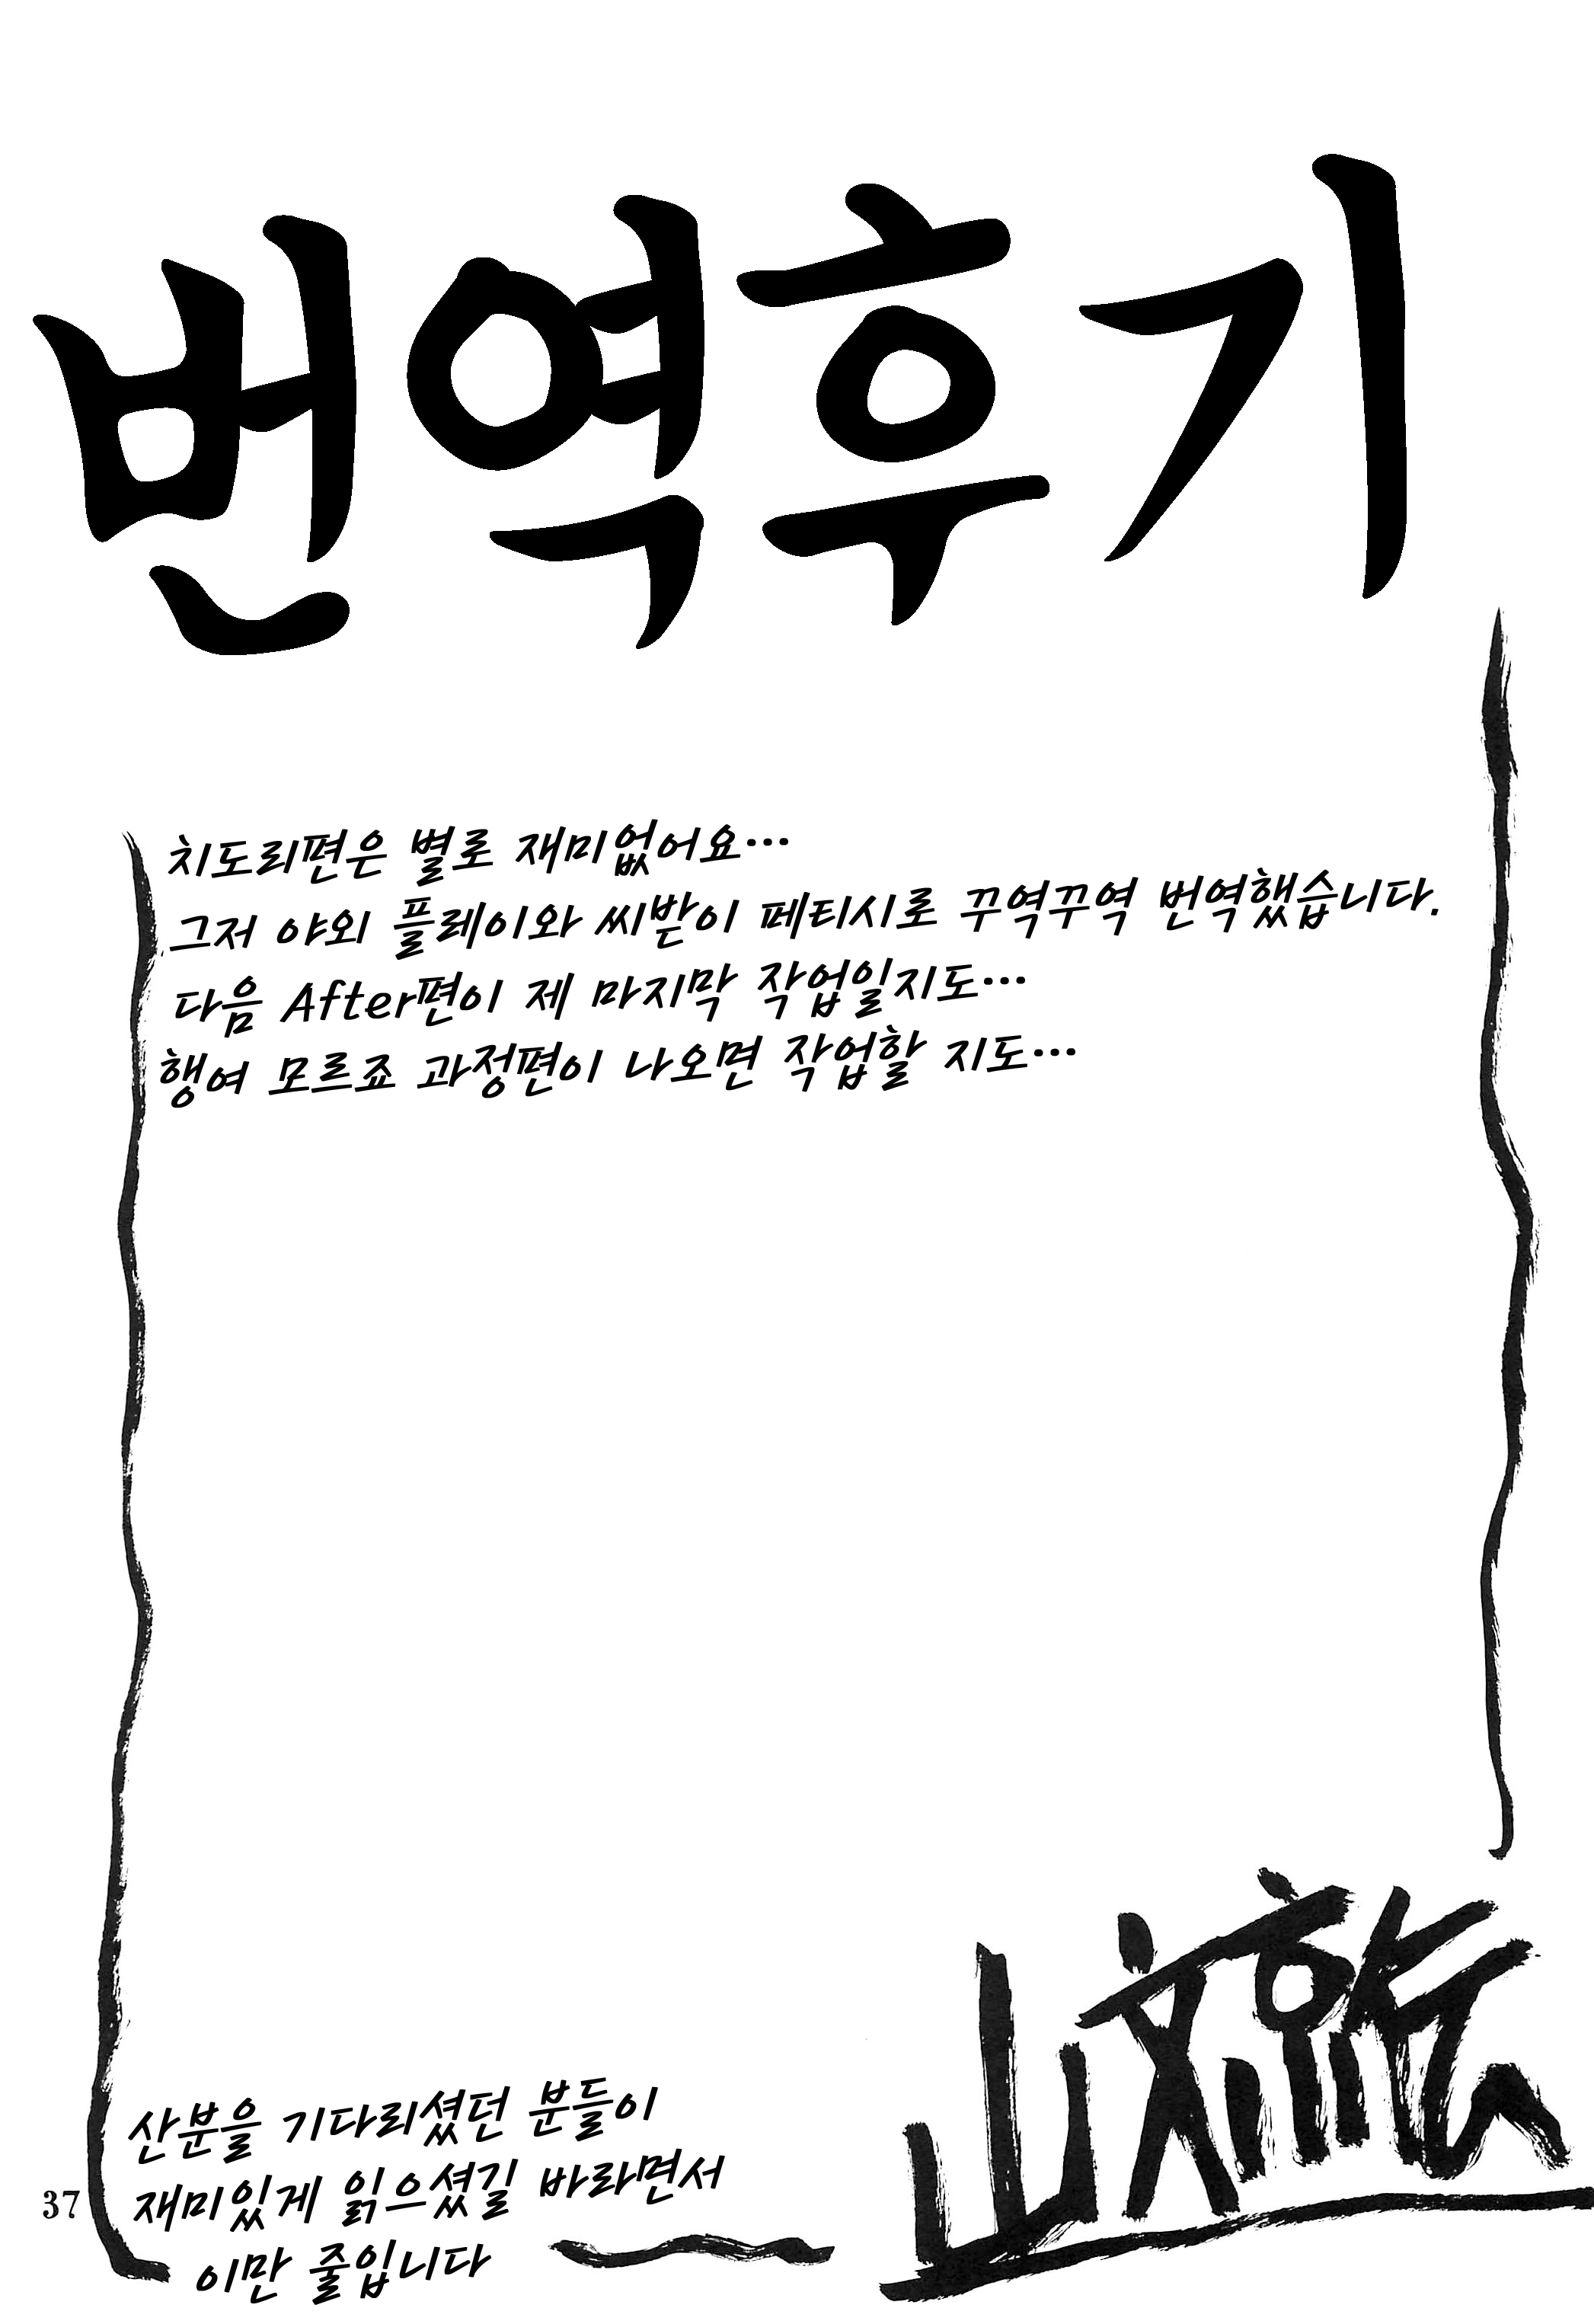 번역후기
치도리편은 별로 재미없어요…
그저 야외 플레이와 씨받이 페티시로 꾸역꾸역 번역했습니다.
다음 After편이 제 마지막 작업일지도…
행여 모르죠 과정편이 나오면 작업할 지도…
산분을 기다리셨던 분들이
재미있게 읽으셨길 바라면서
이만 줄입니다
山文京
37